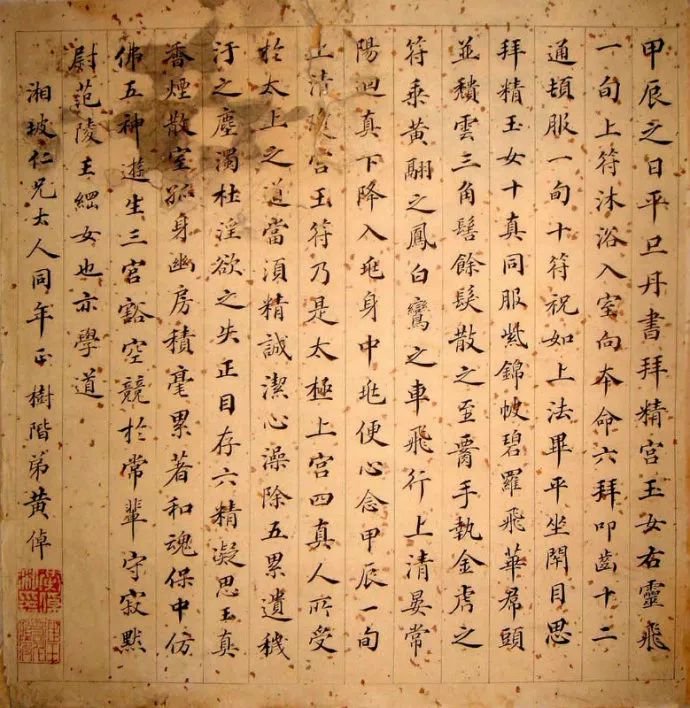 甲辰之日平旦丹書拜精宮玉女右靈飛
一旬上符沐浴入室向本命六拜叩齒十二
通頓服一旬十符祝如上法畢平坐閉目思
拜精玉女十真同服紫錦帔碧羅飛華帬頭
並頹雲三角髻餘髮散之至手執金虎之
符乘黃翮之鳳白鸞之車飛行上清晏常
陽迴真下降入兆身中兆便心念甲辰一旬
上清瓊宮玉符乃是太極上宮四真人所受
於太上之道當須精誠潔心澡除五累遺穢
汙之塵濁杜淫欲之失正目存六精凝思玉真
香煙散室孤身幽房積毫累著和魂保中仿
佛五神遊生三宮豁空競於常輩守寂默
尉范陵王綱女也亦學道
湘坡仁兄大人同年正樹階弟黃倬